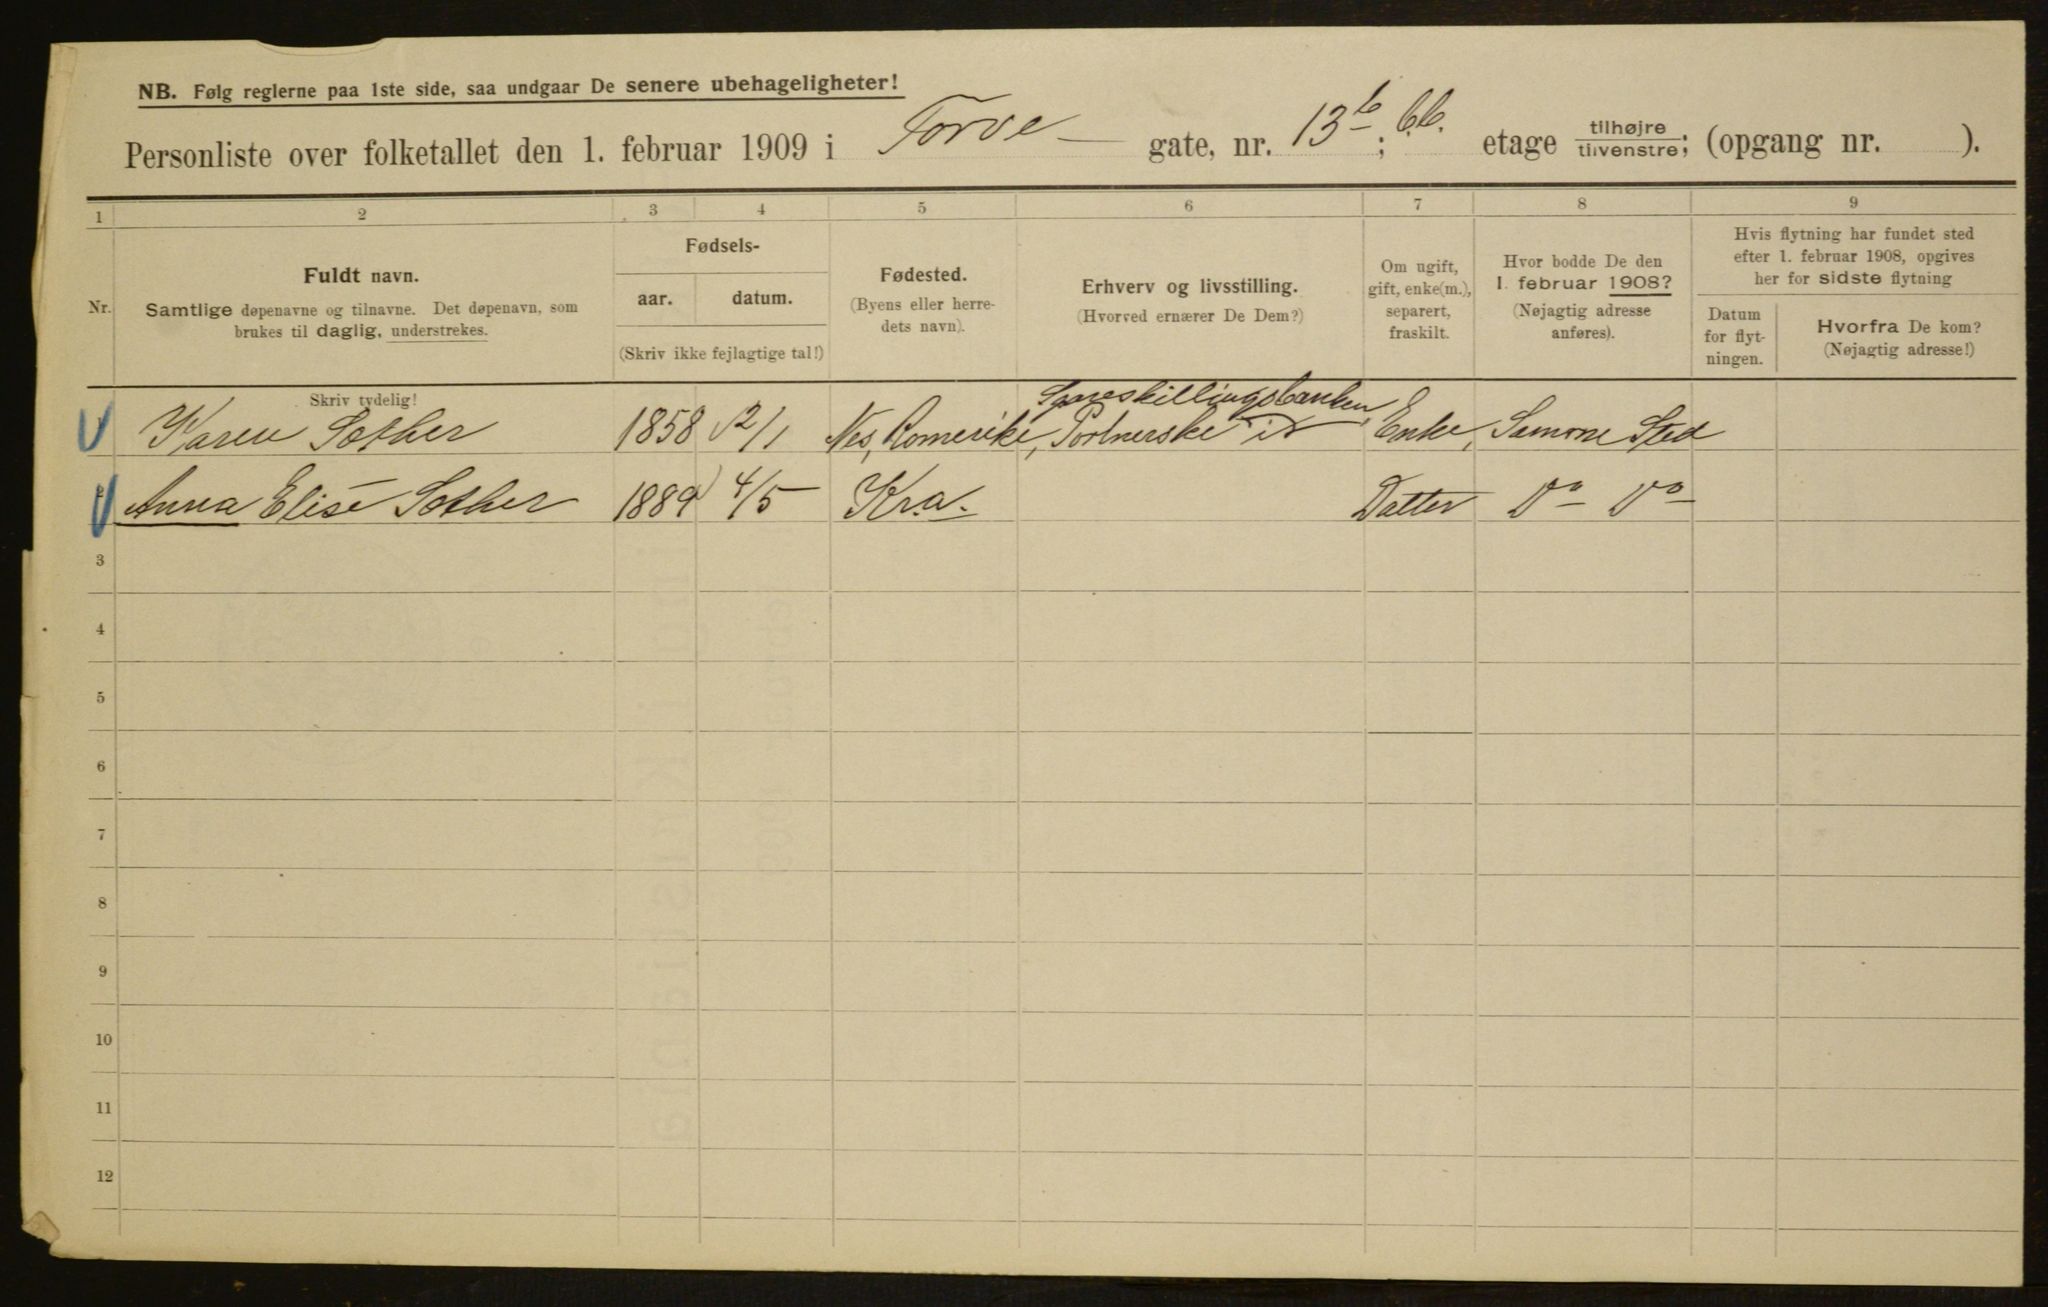 NB. Følg reglerne paa 1ste side, saa undgaar De senere ubehageligheter!
Personliste over folketallet den 1. februar 1909 i Torve- gate, nr. 13b; etage tilhøjre tilvenstre; (opgang nr. ).
1 2 3 4 5 6 7 8 9
Nr.
Fuldt navn.
Samtlige døpenavne og tilnavne. Det døpenavn, som
brukes til daglig, understrekes.
Fødsels-
aar. datum.
(Skriv ikke fejlagtige tal!)
Fødested.
(Byens eller herre-
dets navn).
Erhverv og livsstilling.
(Hvorved ernærer De Dem?)
Om ugift,
gift, enke(m.),
separert,
fraskilt.
Hvor bodde De den
1. februar 1908?
(Nøjagtig adresse
anføres).
Hvis flytning har fundet sted
efter 1. februar 1908, opgives
her for sidste flytning
Datum
for flyt-
ningen.
Hvorfra De kom?
(Nøjagtig adresse!)
Skriv tydelig!
Spareskillingsbanken
Karen Sæther 1858 12/1 Nes, Romerike, Portnerske i Enke, Samme Sted
Anna Elise Sæther 1889 4/5 Kra. Datter Do Do
3
4
5
6
7
8
9
10
11
12